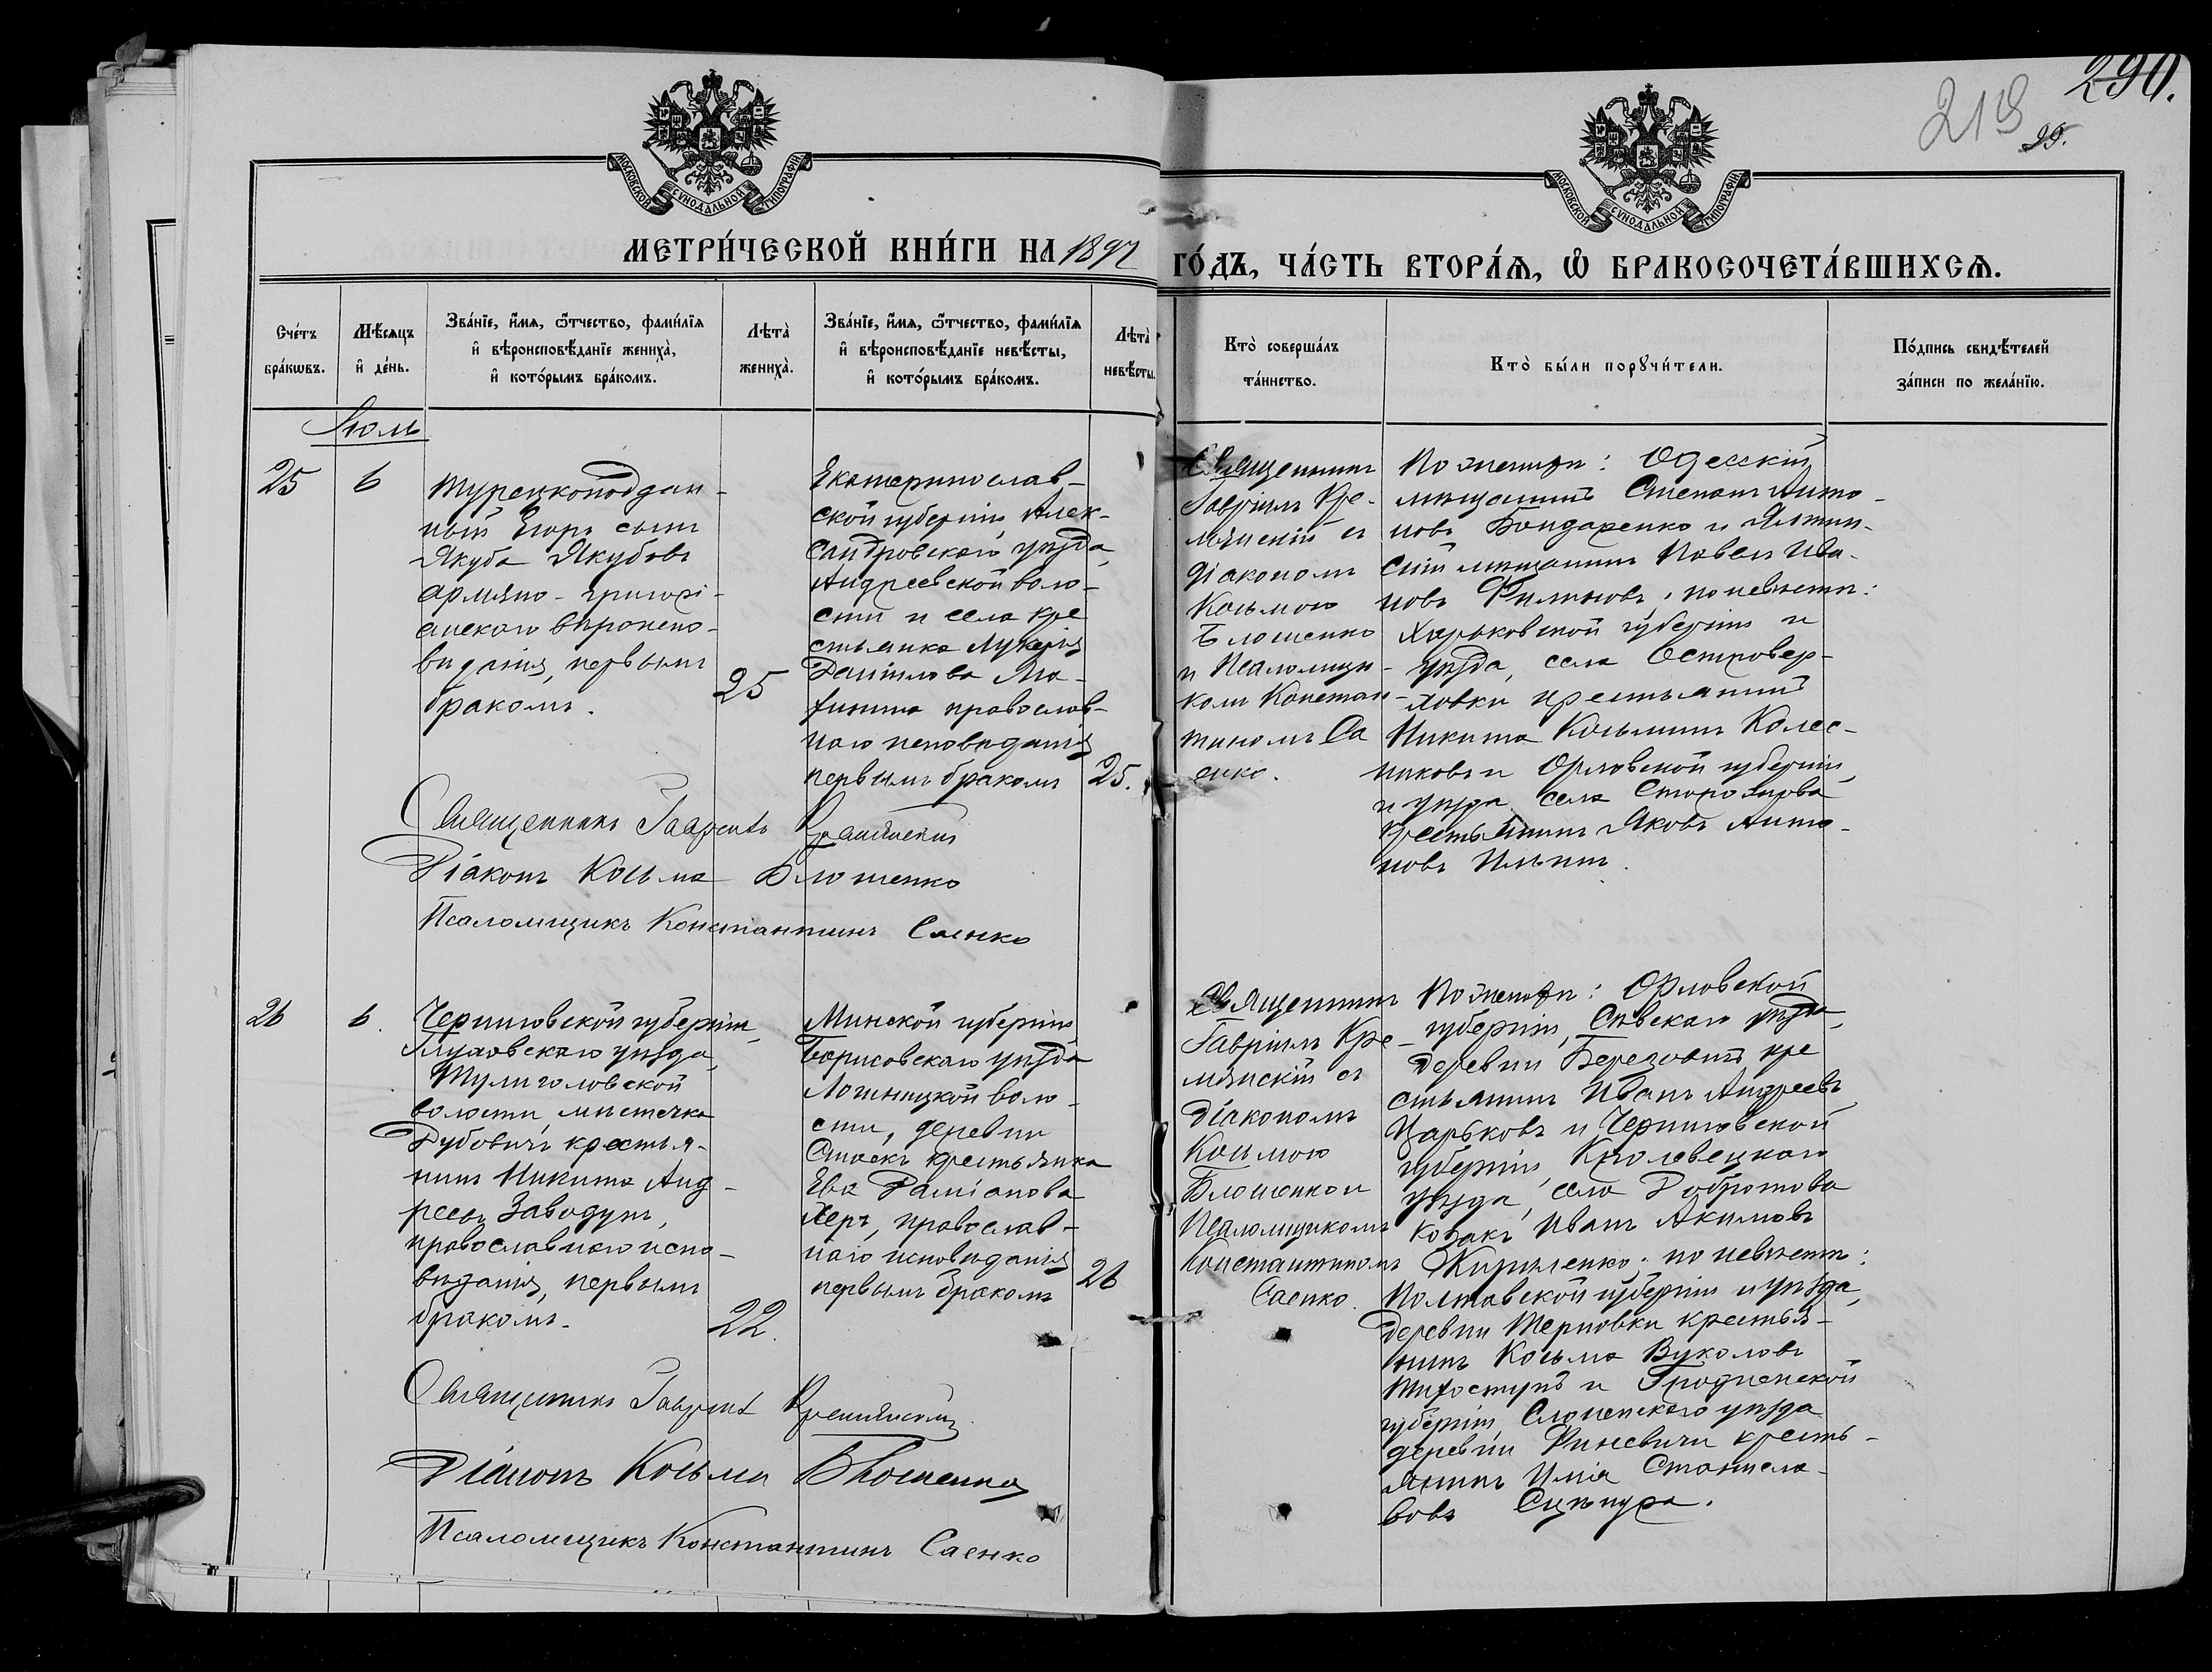 290.
219
25.
МОСКОВСКОЙ СѴНОДАЛЬНОЙ ТИПОГРАФІИ
МОСКОВСКОЙ СѴНОДАЛЬНОЙ ТИПОГРАФІИ
МЕТРИ́ЧЕСКОЙ КНИ́ГИ НА 1892
ГО́ДЪ, ЧА́СТЬ ВТОРА́Ѧ, Ѽ БРАКОСОЧЕТА́ВШИХСѦ.
Сче́тъ
бра́кѡвъ.
Мѣ́сѧцъ
и҆ де́нь.
Зва́нїе, и҆́мѧ, ѻ҆́тчество, фамѝлїѧ
и҆ вѣроисповѣ́данїе жениха̀,
и҆ кото́рымъ бра́комъ.
Лѣта̀
жениха̀.
Зва́нїе, и҆́мѧ, ѻ҆́тчество, фамѝлїѧ
и҆ вѣроисповѣ́данїе невѣ́сты,
и҆ кото́рымъ бра́комъ.
Лѣта̀
невѣ́сты.
Кто̀ соверша́лъ
та́инство.
Кто̀ бы́ли порꙋчи́тели.
По́дпись свидѣ́телей
за́писи по жела́нїю.
Іюль
25
6
Турецкоподдан-
ный Егоръ сынъ
Якуба Якубовъ
армяно-григорі-
анскаго вѣроиспо-
вѣданія, первымъ
бракомъ.
25
Екатеринослав-
ской губерніи, Алек-
сандровскаго уѣзда,
Андреевской воло-
сти и села кре
стьянка Лукерія
Даніилова
православ-
наго исповѣданія
первымъ бракомъ
25.
Священникъ
Гавріилъ Кре-
мянскій съ
діакономъ
Косьмою
Блошенко
и Псаломщи-
комъ Констан-
тиномъ Са
енко.
По женихѣ: Одесскій
мѣщанинъ Степанъ Анто-
новъ Бондаренко и Ялтин-
скій мѣщанинъ Павелъ Ива-
новъ Филиновъ, по невѣстѣ:
Харьковской губерніи и
уѣзда, села Островер-
ховки крестьянинъ
Никита Косьминъ Колес-
никовъ и Орловской губерніи,
и уѣзда, села
крестьянинъ Яковъ Анто-
новъ Ильинъ.
Священникъ Гавріилъ Кремянскій
Діаконъ Косьма Блошенко
Псаломщикъ Константинъ Саенко
26
6.
Черниговской губерніи,
Глуховскаго уѣзда,
Тулиголовской
волости, мѣстечка
Дубовичъ крестья-
нинъ Никита Анд-
реевъ Заводунъ,
православнаго испо-
вѣданія, первымъ
бракомъ.
22.
Минской губерніи,
Борисовскаго уѣзда
воло-
сти, деревни
крестьянка
Ева Даміанова
Херъ, православ-
наго исповѣданія
первымъ бракомъ
26
Священникъ
Гавріилъ Кре-
мянскій съ
Діакономъ
Косьмою
Блошенко и
Псаломщикомъ
Константиномъ
Саенко.
По женихѣ: Орловской
губерніи, Сѣвскаго уѣзда,
деревни кре
стьянинъ Иванъ Андреевъ
Царьковъ и Черниговской
губерніи, Кролевецкаго
уѣзда, села Добротова
козакъ Иванъ Акимовъ
Кириленко; по невѣстѣ:
Полтавской губерніи и уѣзда,
деревни Терновки крестья-
нинъ Косьма Вуколовъ
и Гродненской
губерніи, Слонимскаго уѣзда
деревни крестъ-
янинъ Илія Станисла-
вовъ
Священникъ Гавріилъ Кремянскій
Діаконъ Косьма Блошенко
Псаломщикъ Константинъ Саенко